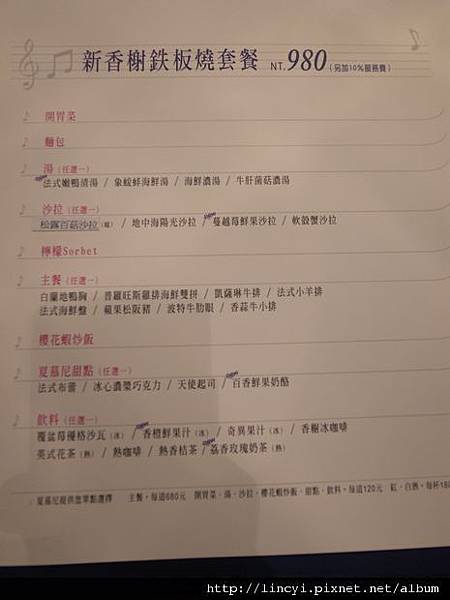 新香榭鉄板燒套餐 NT.980 (另加10%服務費)
開胃菜
麵包
湯 (任選一)
法式嫩鴨清湯 / 象蚌海鮮湯 / 海鮮濃湯 / 牛肝菌菇濃湯
沙拉 (任選一)
松露百菇沙拉 / 地中海陽光沙拉 / 蔓越莓鮮果沙拉 / 軟殼蟹沙拉
檸檬Sorbet
主餐 (任選一)
白蘭地鴨胸 / 普羅旺斯雞排海鮮雙拼 / 凱薩琳牛排 / 法式小羊排
法式海鮮盤 / 蘋果松阪豬 / 波特牛肋眼 / 香蒜牛小排
櫻花蝦炒飯
夏慕尼甜點 (任選一)
法式布蕾 / 冰心濃漿巧克力 / 天使起司 / 百香鮮果奶酪
飲料 (任選一)
覆盆莓優格沙瓦 (冰) / 香橙鮮果汁 (冰) / 奇異果汁 (冰) / 香榭冰咖啡
英式花茶 (熱) / 熱咖啡 / 熱香桔茶 (熱) / 荔香玫瑰奶茶 (熱)
夏慕尼提供您單點選擇 主餐,每道680元 開胃菜.湯.沙拉.櫻花蝦炒飯.甜點.飲料,每道120元 紅.白酒,每杯180
http://lincyi.pixnet.net/album